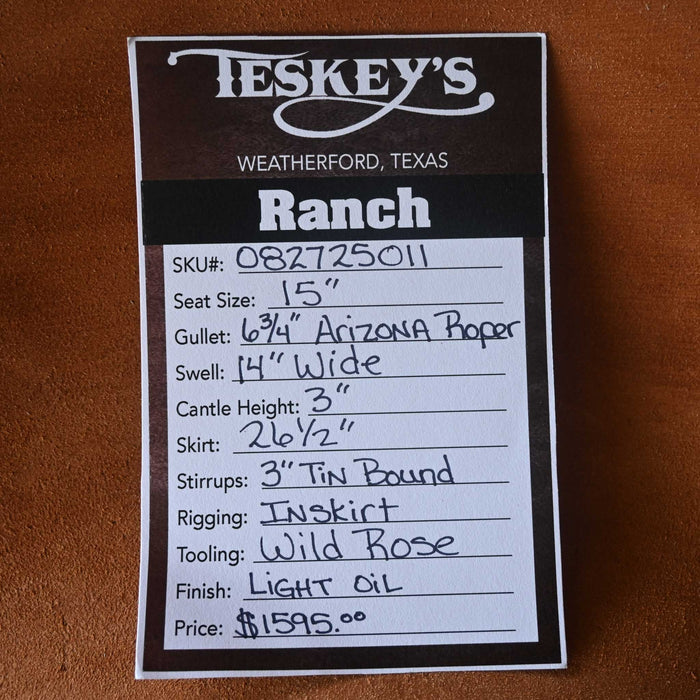 TESKEY'S
WEATHERFORD, TEXAS
Ranch
SKU#: 082725011
Seat Size: 15"
Gullet: 6 3/4" Arizona Roper
Swell: 14" Wide
Cantle Height: 3"
Skirt: 26 1/2"
Stirrups: 3" Tin Bound
Rigging: Inskirt
Tooling: Wild Rose
Finish: Light Oil
Price: $1595.00